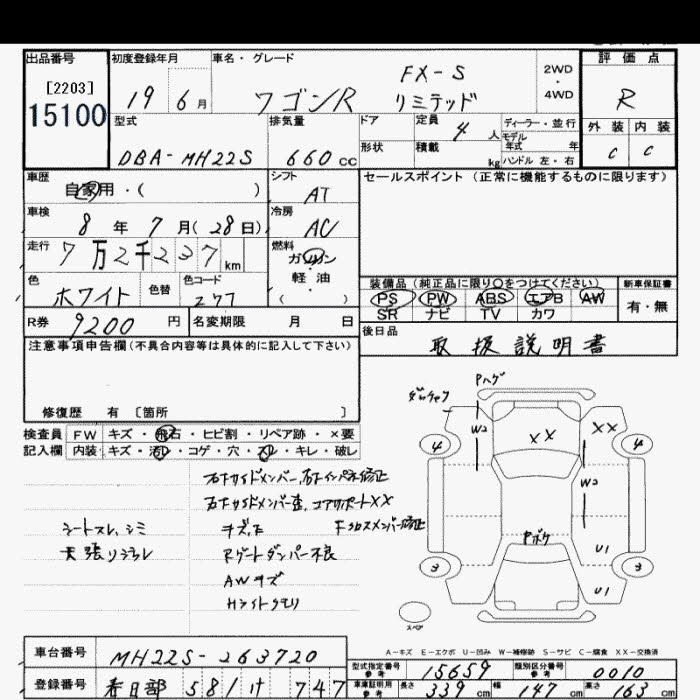 出品番号 初度登録年月 車名・グレード 評価点
[2203] FX-S 2WD
15100 19 6月 ワゴンR リミテッド ・4WD R
型式 排気量 ドア 定員 4人 ディーラー・並行 外装 内装
DBA-MH22S 660cc 形状 積載 kg モデル年式 年 C C
ハンドル 左・右
車歴 シフト セールスポイント(正常に機能するものに限ります)
自家用・( ) AT
車検 冷房
8年 7月(28日) AC
走行 燃料
7万2千237km ガソリン・軽油
色 色替 色コード ( ) 装備品(純正品に限り○をつけてください) 新車保証書
ホワイト Z7T PS PW ABS エアB AW 有・無
SR ナビ TV カワ
R券 9200円 名変期限 月 日 後日品
注意事項申告欄(不具合内容等は具体的に記入して下さい) 取扱説明書
修復歴 有 〔箇所 〕
検査員 FW キズ・飛石・ヒビ割・リペア跡・×要
記入欄 内装 キズ・汚レ・コゲ・穴・スレ・キレ・破レ
Pハゲ
W2 XX XX
4 4
W2
Pボケ U1
3 3
U1
スペア
右フサイドメンバー、右フインパネ修正
左フサイドメンバー歪、コアサポートXX
キズ、E Fクロスメンバー修正
シートスレ、シミ
天張り
Rゲートダンパー不良
AWキズ
Hライトクモリ
A-キズ E-エクボ U-凹み W-補修跡 S-サビ C-腐食 XX-交換済
車台番号 MH22S-263720
型式指定番号 参考 15659 類別区分番号 参考 0010
登録番号 春日部 581 け 747
車庫証明用 参考 長さ 339cm 幅 147cm 高さ 163cm